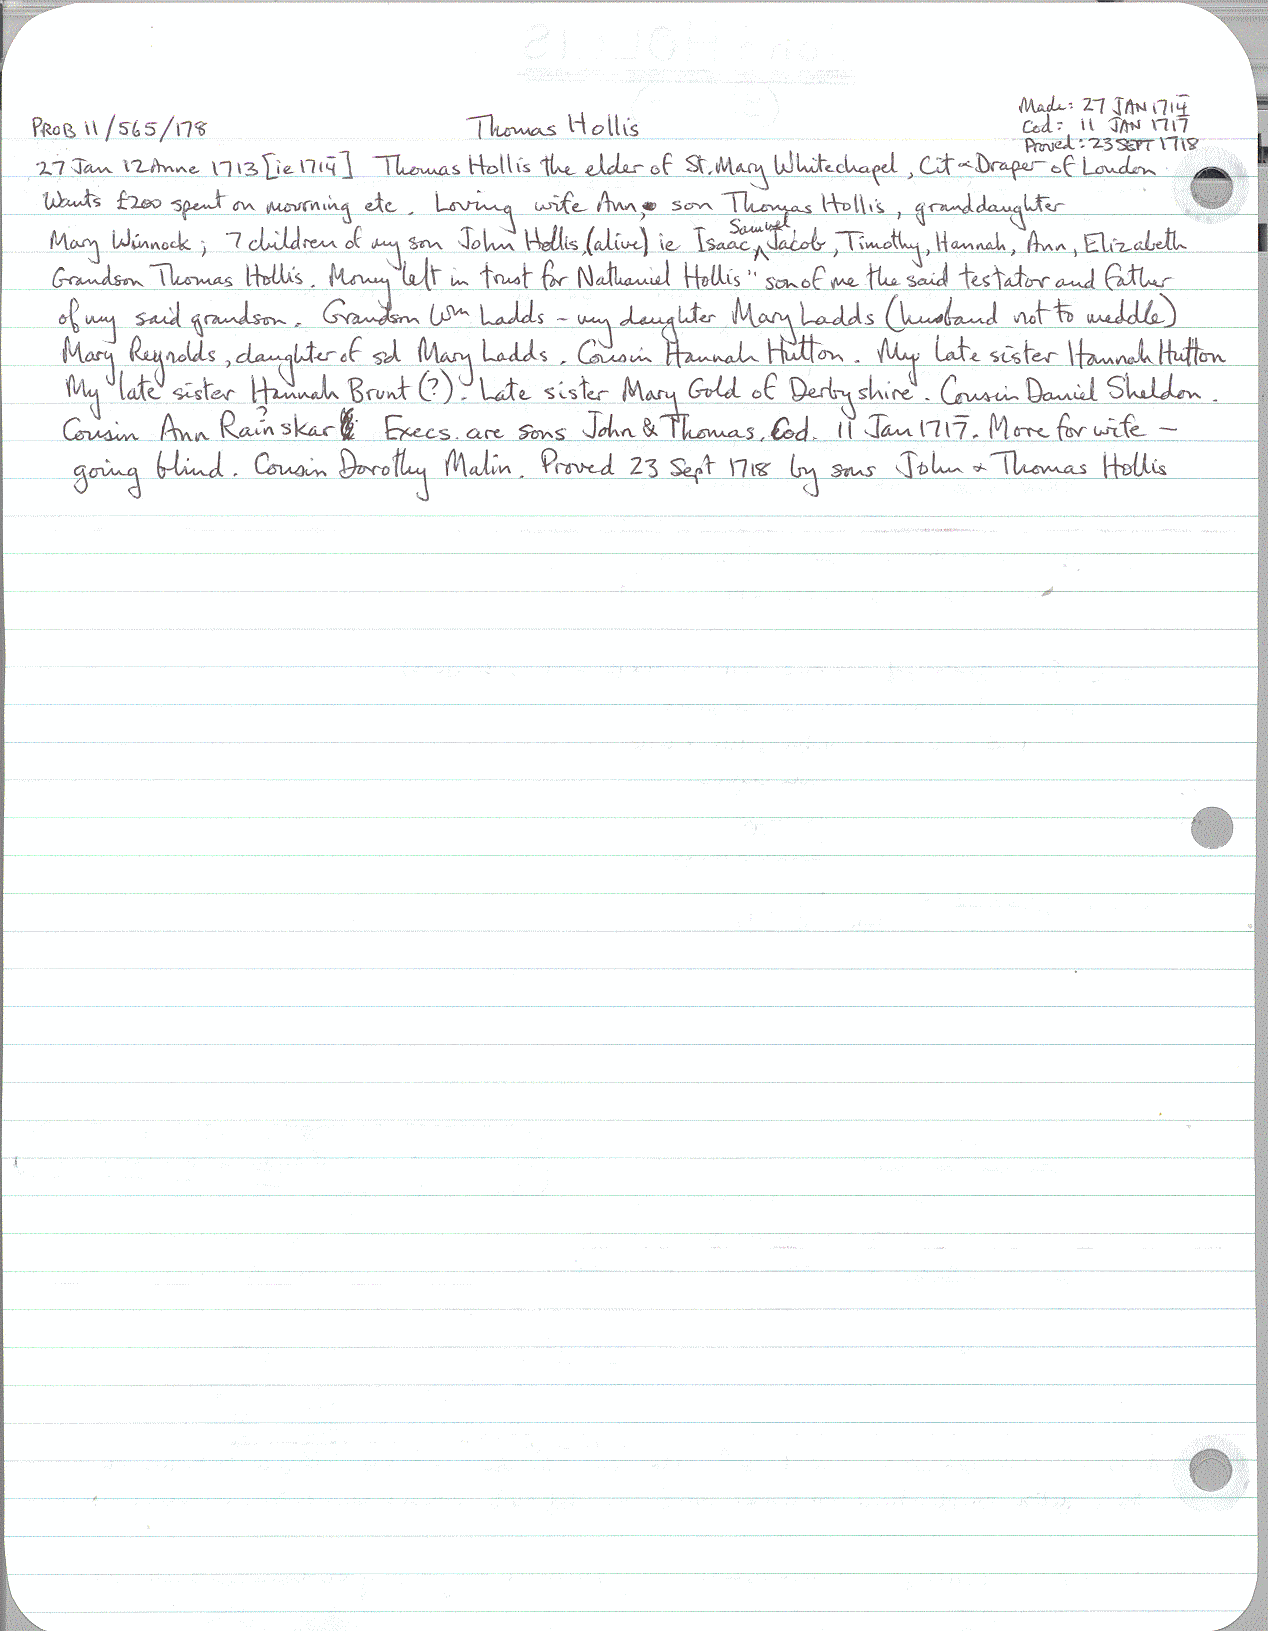 Made: 27 JAN 1714
Cod: 11 JAN 1717
Proved: 23 SEPT 1718
PROB 11/565/178
Thomas Hollis
27 Jan 12 Anne 1713 [ie 1714] Thomas Hollis the elder of St. Mary Whitechapel, Cit & Draper of London
Wants £200 spent on mourning etc. Loving wife Ann, son Thomas Hollis, granddaughter
Mary Winnock; 7 children of my son John Hollis, (alive) ie Isaac, Samuel, Jacob, Timothy, Hannah, Ann, Elizabeth
Grandson Thomas Hollis. Money left in trust for Nathaniel Hollis "son of me the said testator and father
of my said grandson. Grandson Wm Ladds - my daughter Mary Ladds (husband not to meddle)
Mary Reynolds, daughter of sd Mary Ladds. Cousin Hannah Hutton. My late sister Hannah Hutton
My late sister Hannah Brunt (?). Late sister Mary Gold of Derbyshire. Cousin Daniel Sheldon.
Cousin Ann Rain?skar Execs. are sons John & Thomas. Cod. 11 Jan 1717. More for wife -
going blind. Cousin Dorothy Malin. Proved 23 Sept 1718 by sons John & Thomas Hollis